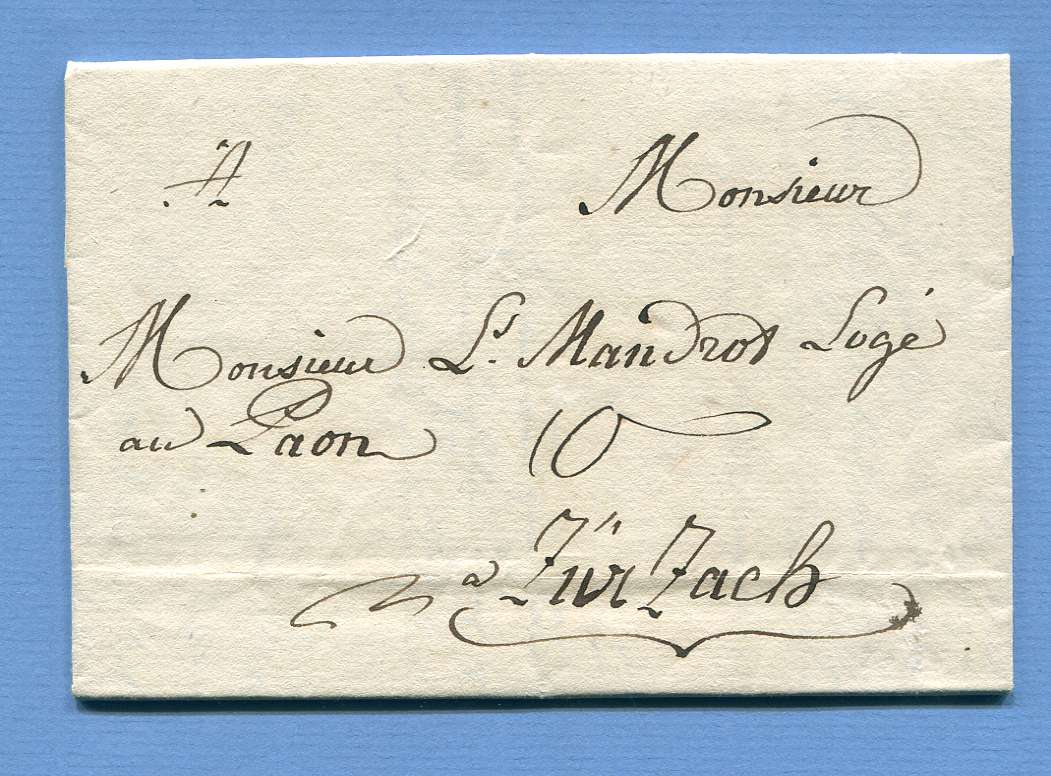 A Monsieur
Monsieur Ls. Mandrot Logé
au Paon
a Zürzach